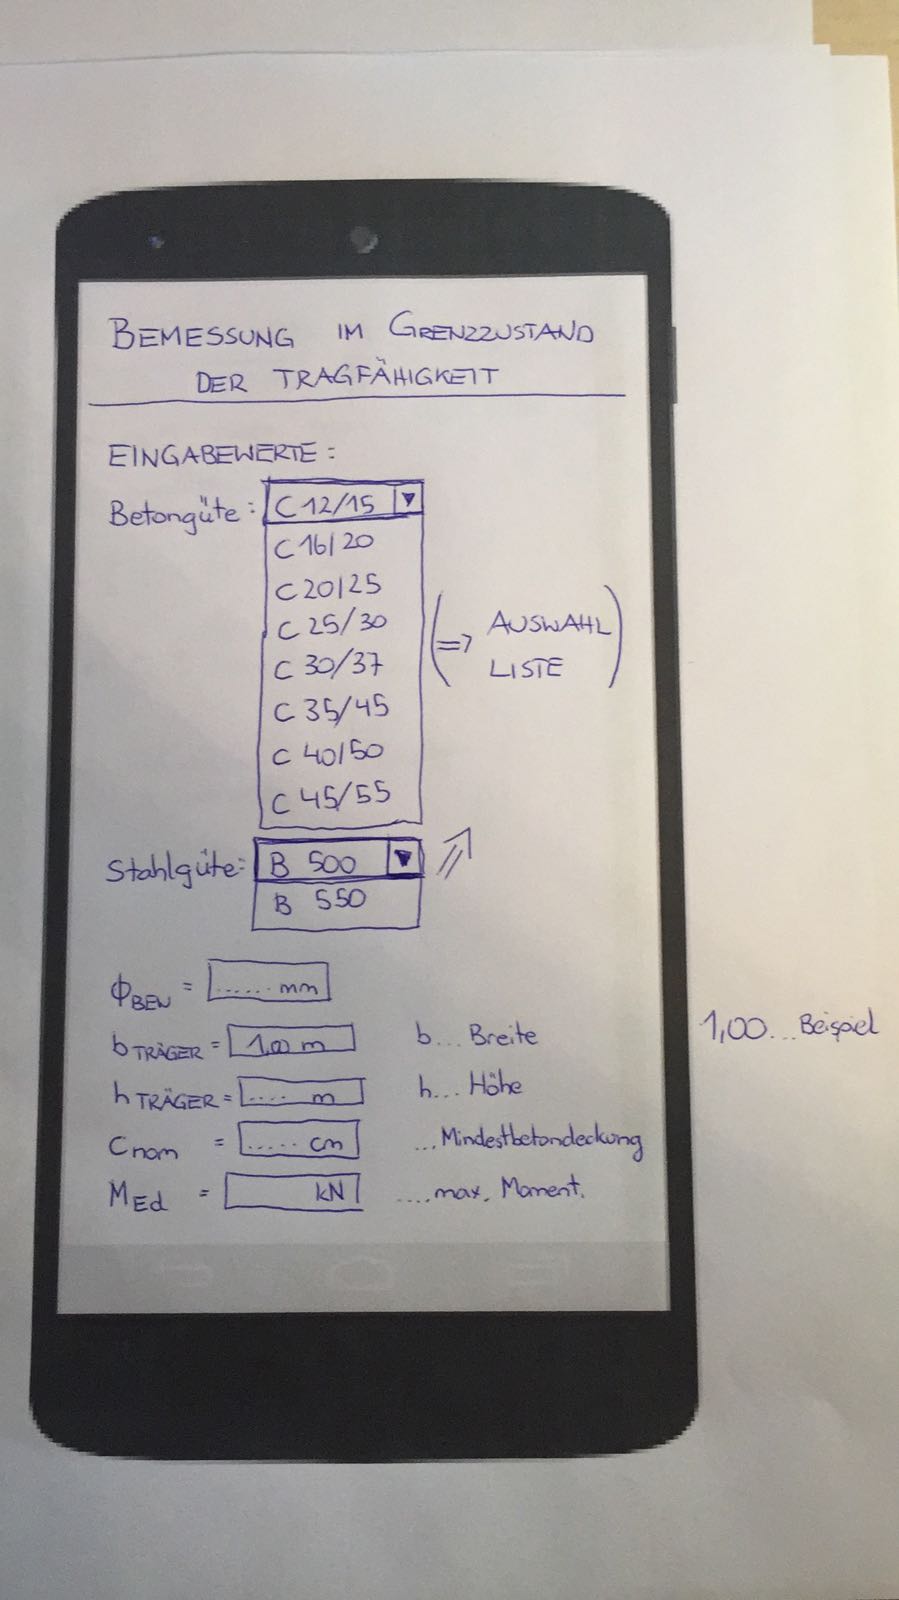 BEMESSUNG IM GRENZZUSTAND
DER TRAGFÄHIGKEIT
EINGABEWERTE:
Betongüte: C 12/15
C 16/20
C 20/25
C 25/30
C 30/37
C 35/45
C 40/50
C 45/55
(=> AUSWAHL
LISTE)
Stahlgüte: B 500
B 550
ϕBEW = ...... mm
bTRÄGER = 1,00 m b... Breite
1,00... Beispiel
hTRÄGER = .... m h... Höhe
Cnom = ..... cm ...Mindestbetondeckung
MEd = kN ....max. Moment.